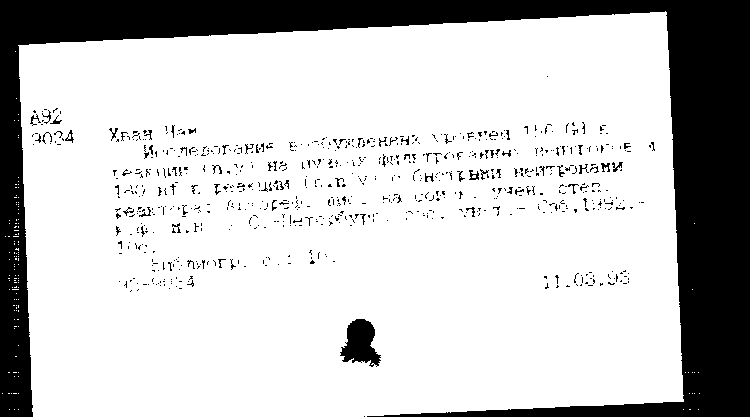 А92
9034 Хван Чам
Исследование возбужденных уровней 156 Gd в
реакции (n,γ) на пучках фильтрованных нейтронов и
180 Hf в реакции с быстрыми нейтронами
реактора: Автореф. дис. на соиск. учен. степ.
к.ф.-м.н. С.-Петербург. гос. ун-т.- Спб,1992.-
16с.
Библиогр. с.: 16.
93-9034 11.03.93